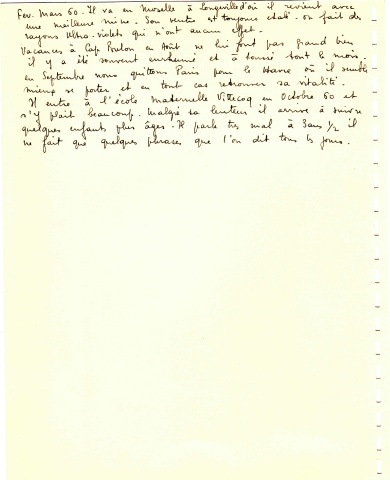 Fev. Mars 60. Il va en Moselle à Longeville d'où il revient avec
une meilleure mine. Son ventre est toujours étalé. On fait des
rayons Ultra-violets qui n'ont aucun effet.
Vacances à Cap Breton en Août ne lui font pas grand bien
il y a été souvent enrhumé et a toussé tout le mois.
en Septembre nous quittons Paris pour le Havre où il semble
mieux se porter et en tout cas retrouver sa vitalité.
Il entre à l'école maternelle Vittecoq en Octobre 60 et
s'y plait beaucoup. Malgré sa lenteur il arrive à suivre
quelques enfants plus âgés. Il parle très mal à 3 ans 1/2 il
ne fait que quelques phrases que l'on dit tous les jours.